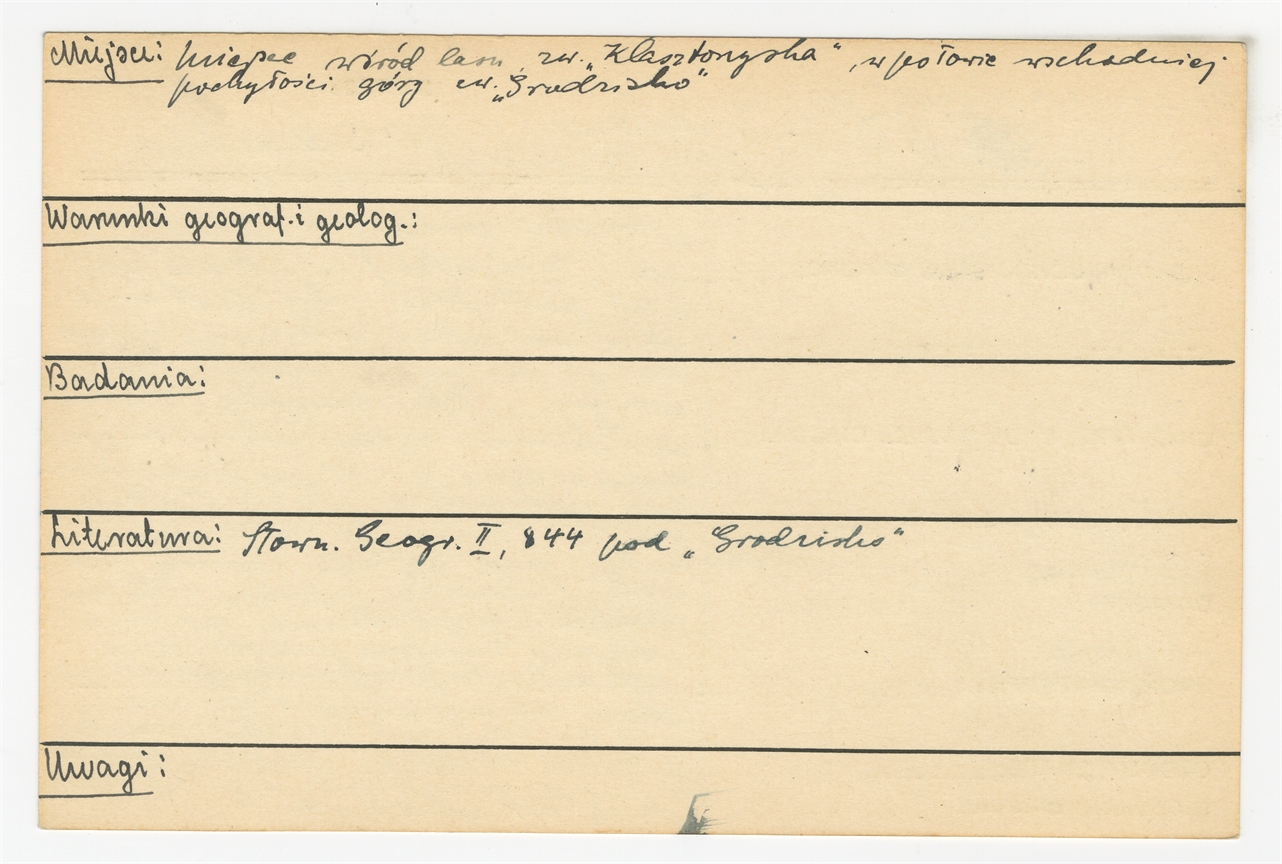 Miejsce: miejsce wśród lasu, zw. „Klasztorzyska", w połowie wschodniej
pochyłości góry zw. „Grodzisko"
Warunki geograf. i geolog.:
Badania:
Literatura: Słown. Geogr. II, 844 pod „Grodzisko"
Uwagi: